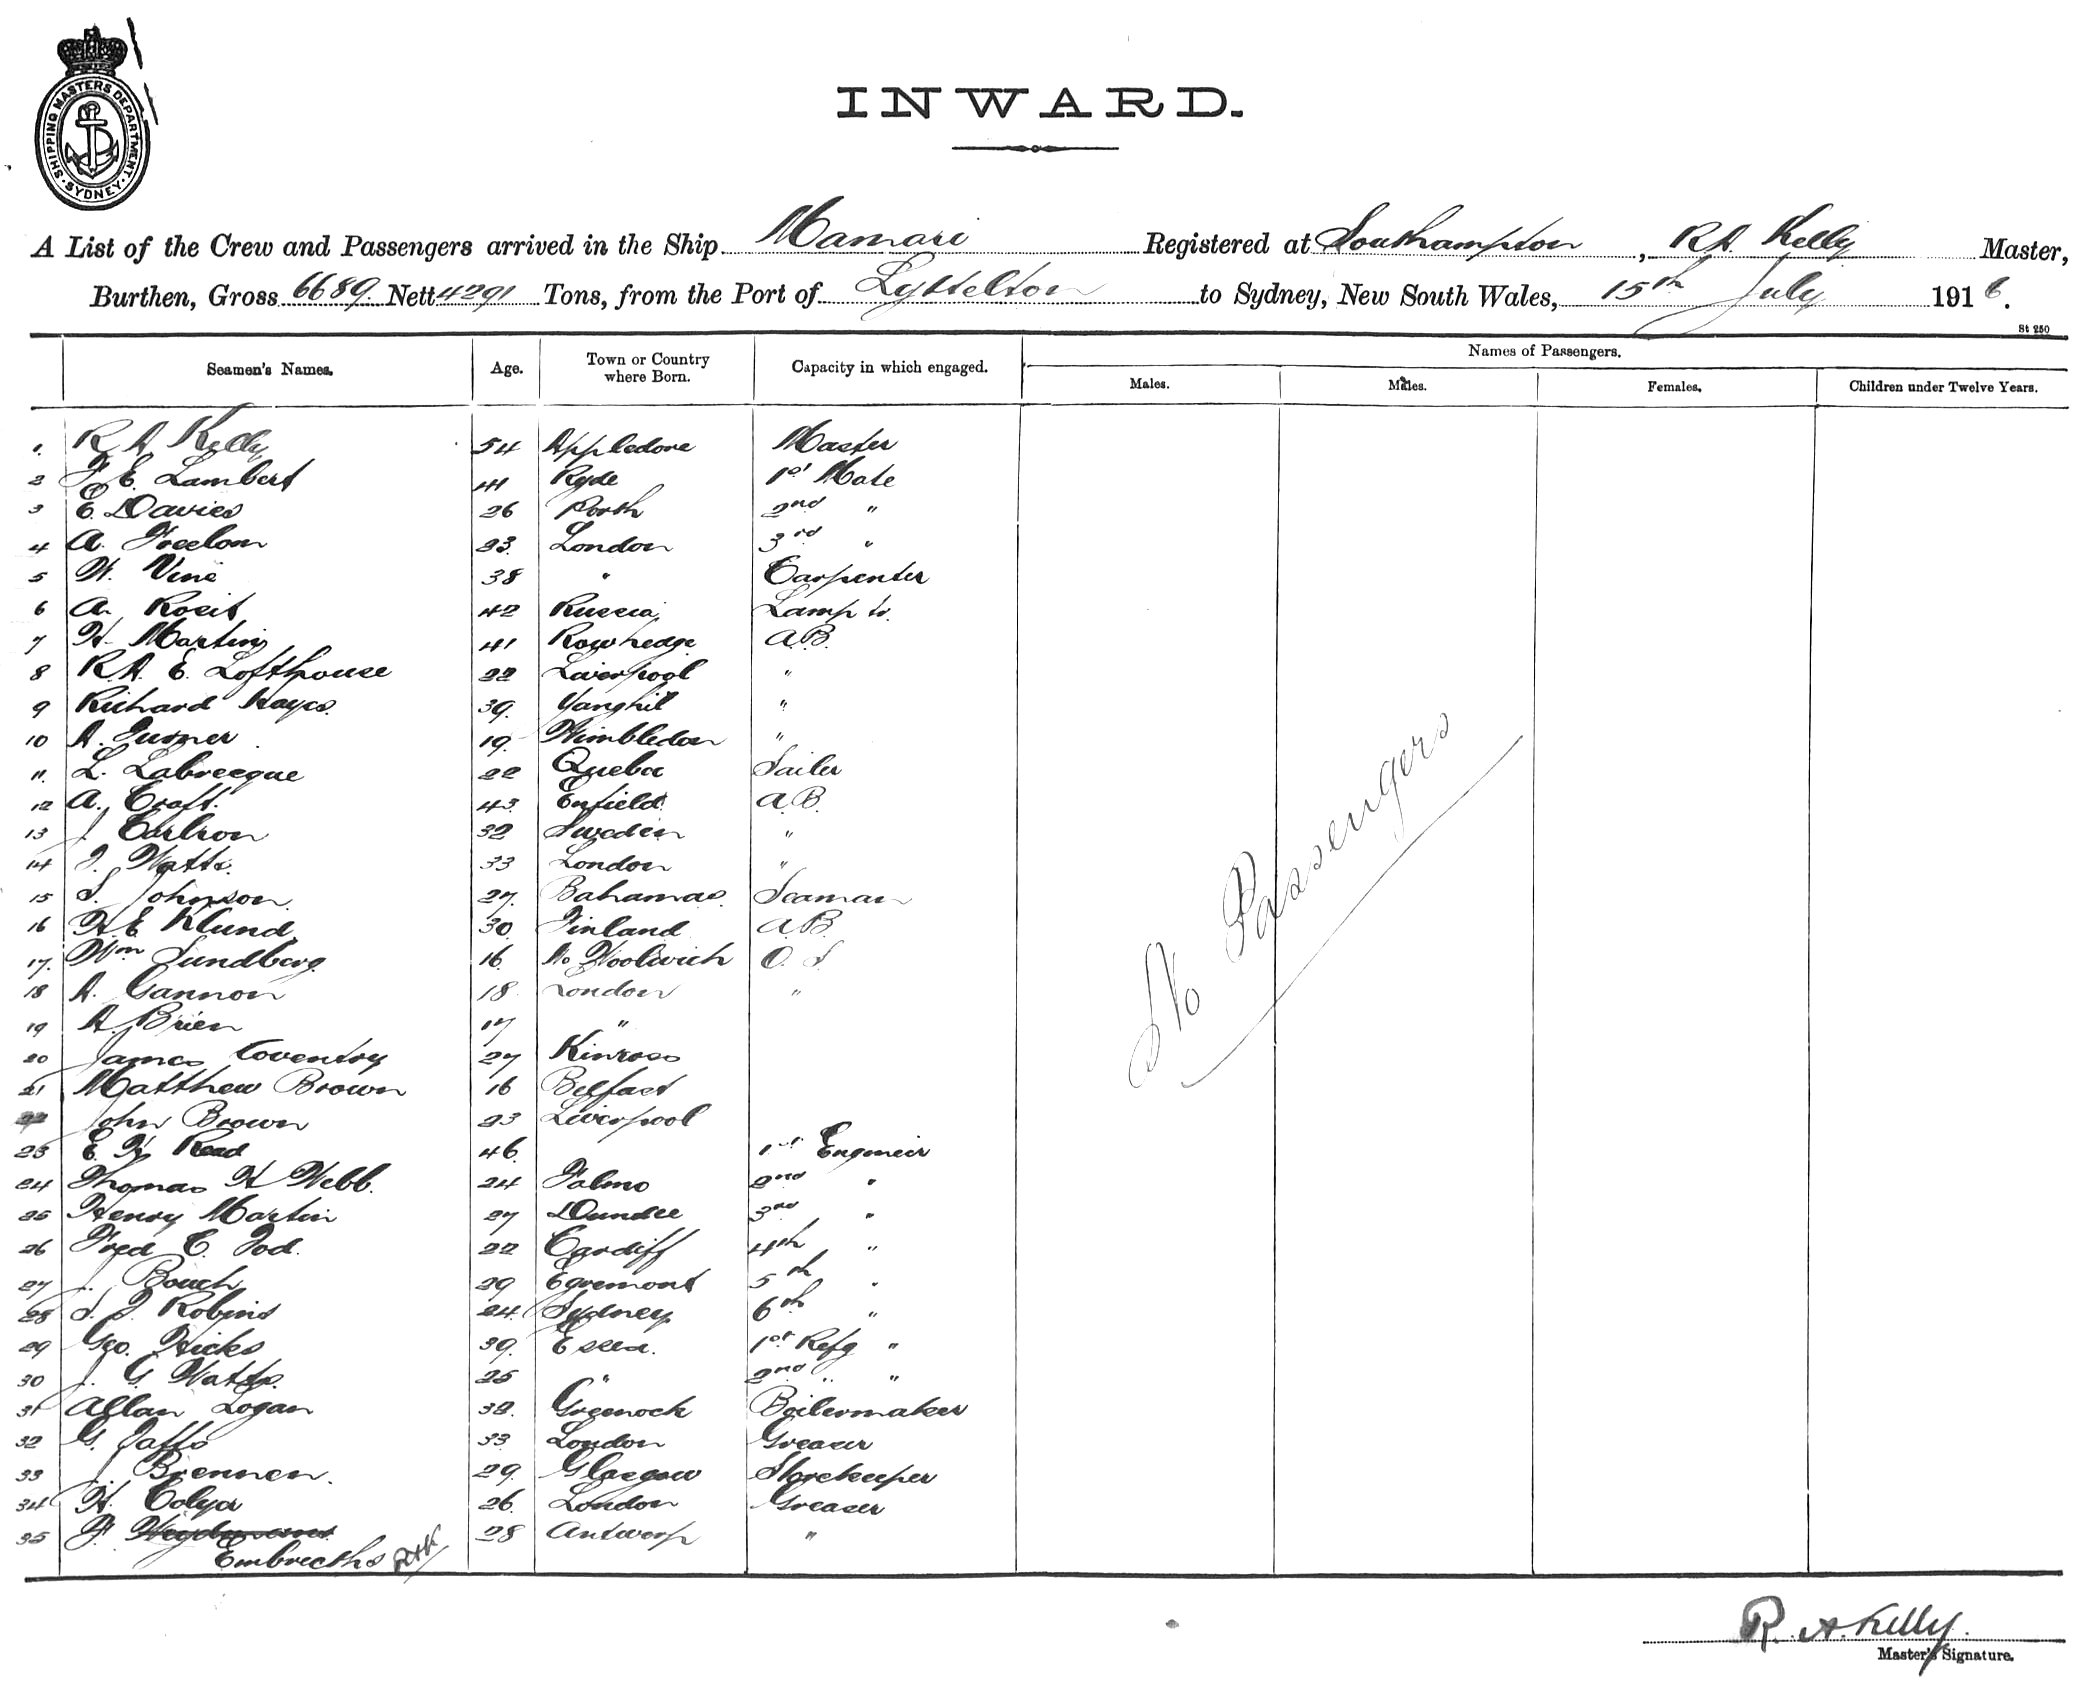 SHIPPING MASTERS DEPARTMENT. SYDNEY
INWARD.
A List of the Crew and Passengers arrived in the Ship Mamari Registered at Southampton, R A Kelly Master,
Burthen, Gross 6689 Nett 4291 Tons, from the Port of Lyttelton to Sydney, New South Wales, 15th July 1916.
St 250
Seamen's Names. Age. Town or Country where Born. Capacity in which engaged. Names of Passengers.
Males. Males. Females. Children under Twelve Years.
1. R A Kelly 54 Appledore Master
2 F E. Lambert 41 Ryde 1st Mate
3 E. Davies 26 Porth 2nd "
4 A. Freelom 23. London 3rd "
5 W. Vine 38 " Carpenter
6 A. Rosit 42 Russia Lamp tr.
7 H Martin 41 Rowhedge A.B.
8 R.A. E. Lofthouse 22 Liverpool "
9 Richard Hayes. 39. "
10 A. Turner 19. Wimbledon "
11. L. Labrecque 22 Quebec Sailer
12 A. Croft. 43. Enfield. A.B.
13 J Carlson 32 Sweden "
14 J. Watts. 33 London "
15 S. Johnson. 27. Bahamas. Seaman
16 H E Klund. 30. Finland A.B.
17. Wm Sundberg 16. No Woolwich O. S
18 A. Gannon 18 London "
19 A. Brien 17 "
20 James Coventry 27 Kinross
21 Matthew Brown 16 Belfast
22 John Brown 23 Liverpool
23 E. Read 46. 1st Engineir
24 Thomas H Webb. 24 Falmo 2nd "
25 Henry Martin 27 Dundee 3rd "
26 Fred C. Tod. 22 Cardiff 4th "
27 J. Bouch 29 Egremont 5th "
28 S. J. Robins 24. Sydney 6th "
29 Geo. Hicks 39. Essex. 1st Refg "
30 J. G. Watts. 25 " 2nd " "
31 Allan Logan 32. Greenock Boilermaker
32 G. Jaffs 33 London Greaser
33 J Brennen. 29. Glasgow Storekeeper
34 H. Colyer 26. London Greaser
35 F. 28 Antwerp "
Embrecths RAK
No Passengers
R. A. Kelly.
Master's Signature.